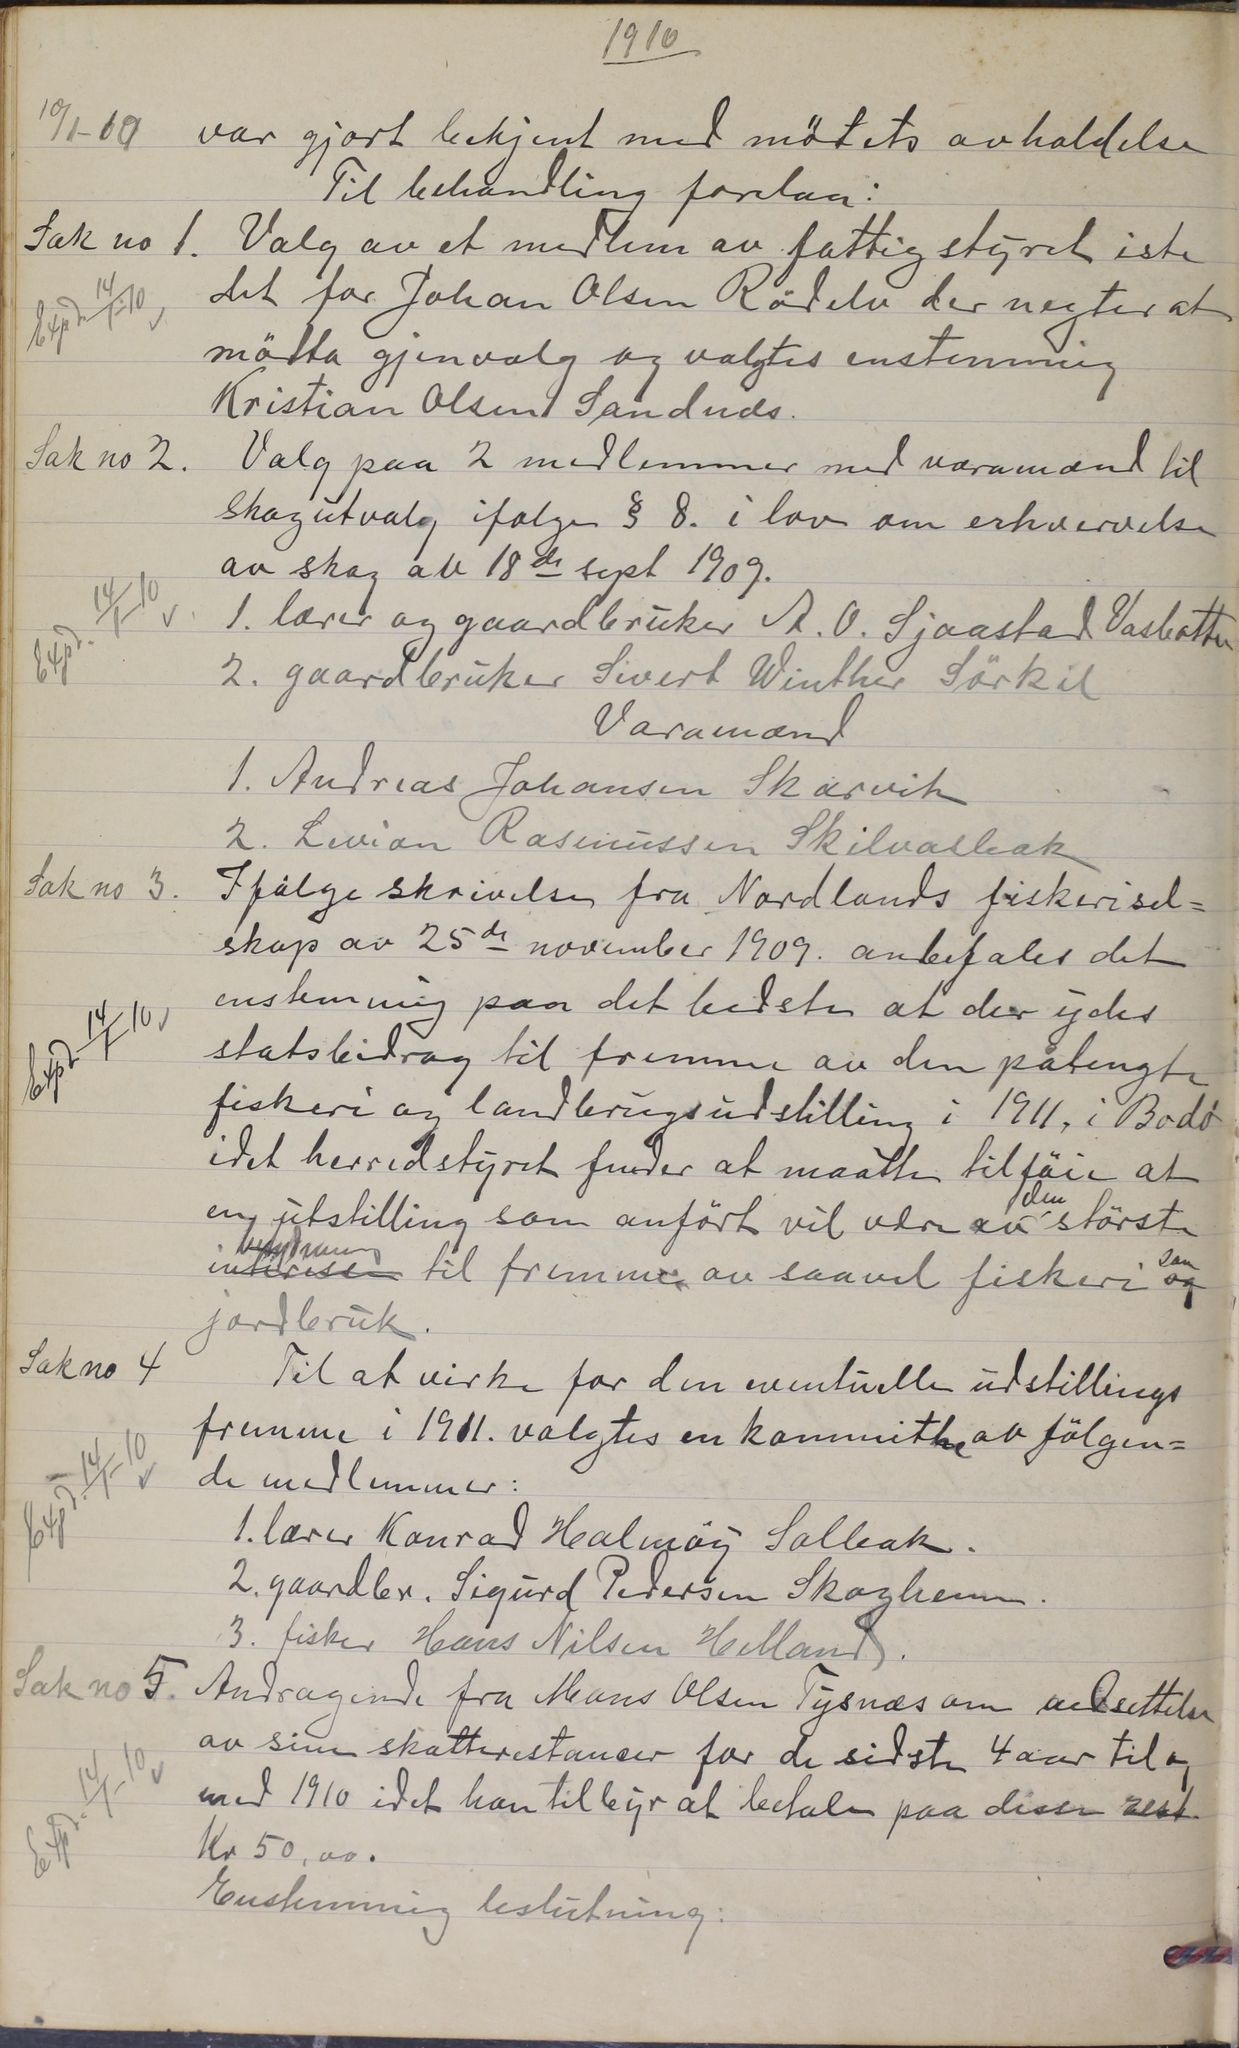 1910
10/1-10 var gjort bekjent med mötets avholdelse
Til behandling forelaa:
Sak no 1. Valg av et medlem av fattigstyret iste
det for Johan Olsen Rödelv der negter at
Expd. 14/1-10 v
mötta gjenvalg og valgtes enstemmig
Kristian Olsen Sandnes.
Sak no 2. Valg paa 2 medlemmer med varamænd til
skogutvalg ifølge § 8. i lov om erhvervelse
av skog av 18de sept 1909.
Expd. 14/1-10 v. 1. lærer og gaardbruker A. O. Sjaastad Vasbotten
2. gaardbruker Sivert Winther Sörkil
Varamænd
1. Andreas Johansen Skarvik
2. Levian Rasmussen Skilvasbak
Sak no 3. Ifålge skrivelse fra Nordlands fiskerisel=
skap av 25de november 1909. anbefales det
enstemmig paa det bedste at der ydes
Expd. 14/1-10 v
statsbidrag til fremme av den påtengte
fiskeri og landbrugsudstilling i 1911, i Bodö
idet herredstyret finder at maatte tilföie at
en utstilling som anfört vil være av den störste
interesse betydning til fremme av saavel fiskeri og som
jordbruk.
Sak no 4 Til at virke for den eventuelle udstillings
fremme i 1911. valgtes en kommithe av fölgen=
Expd. 14/1-10 v
de medlemmer:
1. lærer Konrad Halmöy Solbak.
2. gaardbr. Sigurd Pedersen Skoghem.
3. fisker Hans Nilsen Helland.
Sak no 5. Andragende fra Mons Olsen Tysnæs om nedsettelse
av sine skatterestancer for de sidste 4 aar til og
Expd. 14/1-10 v
med 1910 idet han tilbyr at betale paa disse rest
Kr 50,00.
Enstemmig beslutning: